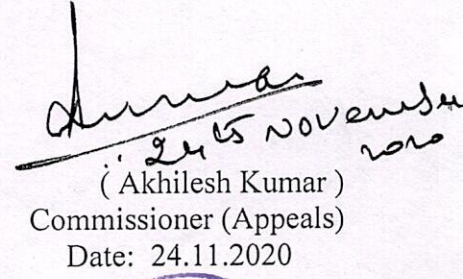 24th November
2020
( Akhilesh Kumar )
Commissioner (Appeals)
Date: 24.11.2020